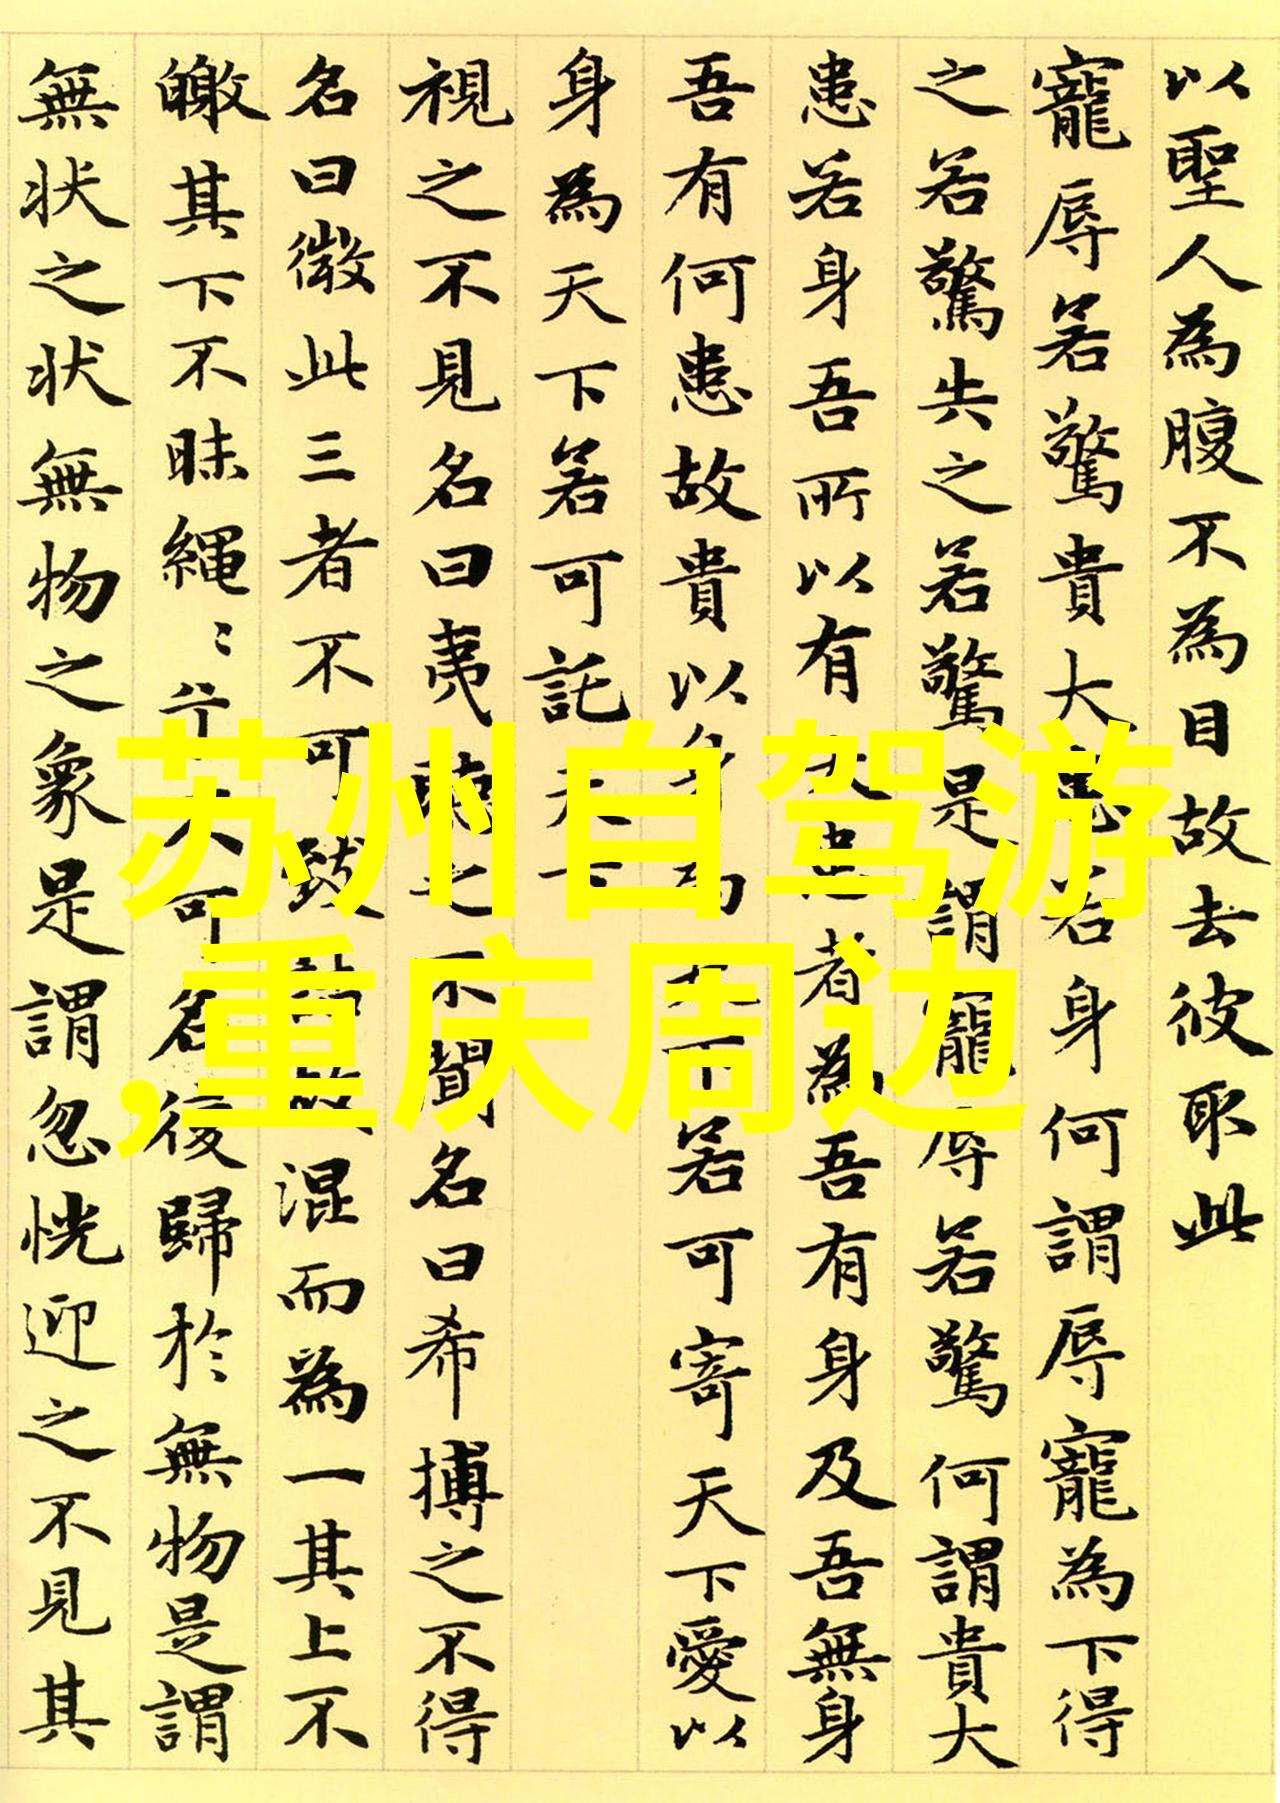 以聖人為腹不為目故去彼取此
寵辱若驚貴大患若身何謂辱寵為下得
之若驚失之若驚是謂寵辱若驚何謂貴大
患若身吾所以有大患者為吾有身及吾無身
吾有何患故貴以身為天下若可寄天下愛以
身為天下若可託天下
視之不見名曰夷聴之不聞名曰希搏之不得
名曰微此三者不可致詰故混而為一其上不
皦其下不昧繩〻兮不可名復歸於無物是謂
無状之状無物之象是謂忽恍迎之不見其
苏州自驾游
,重庆周边